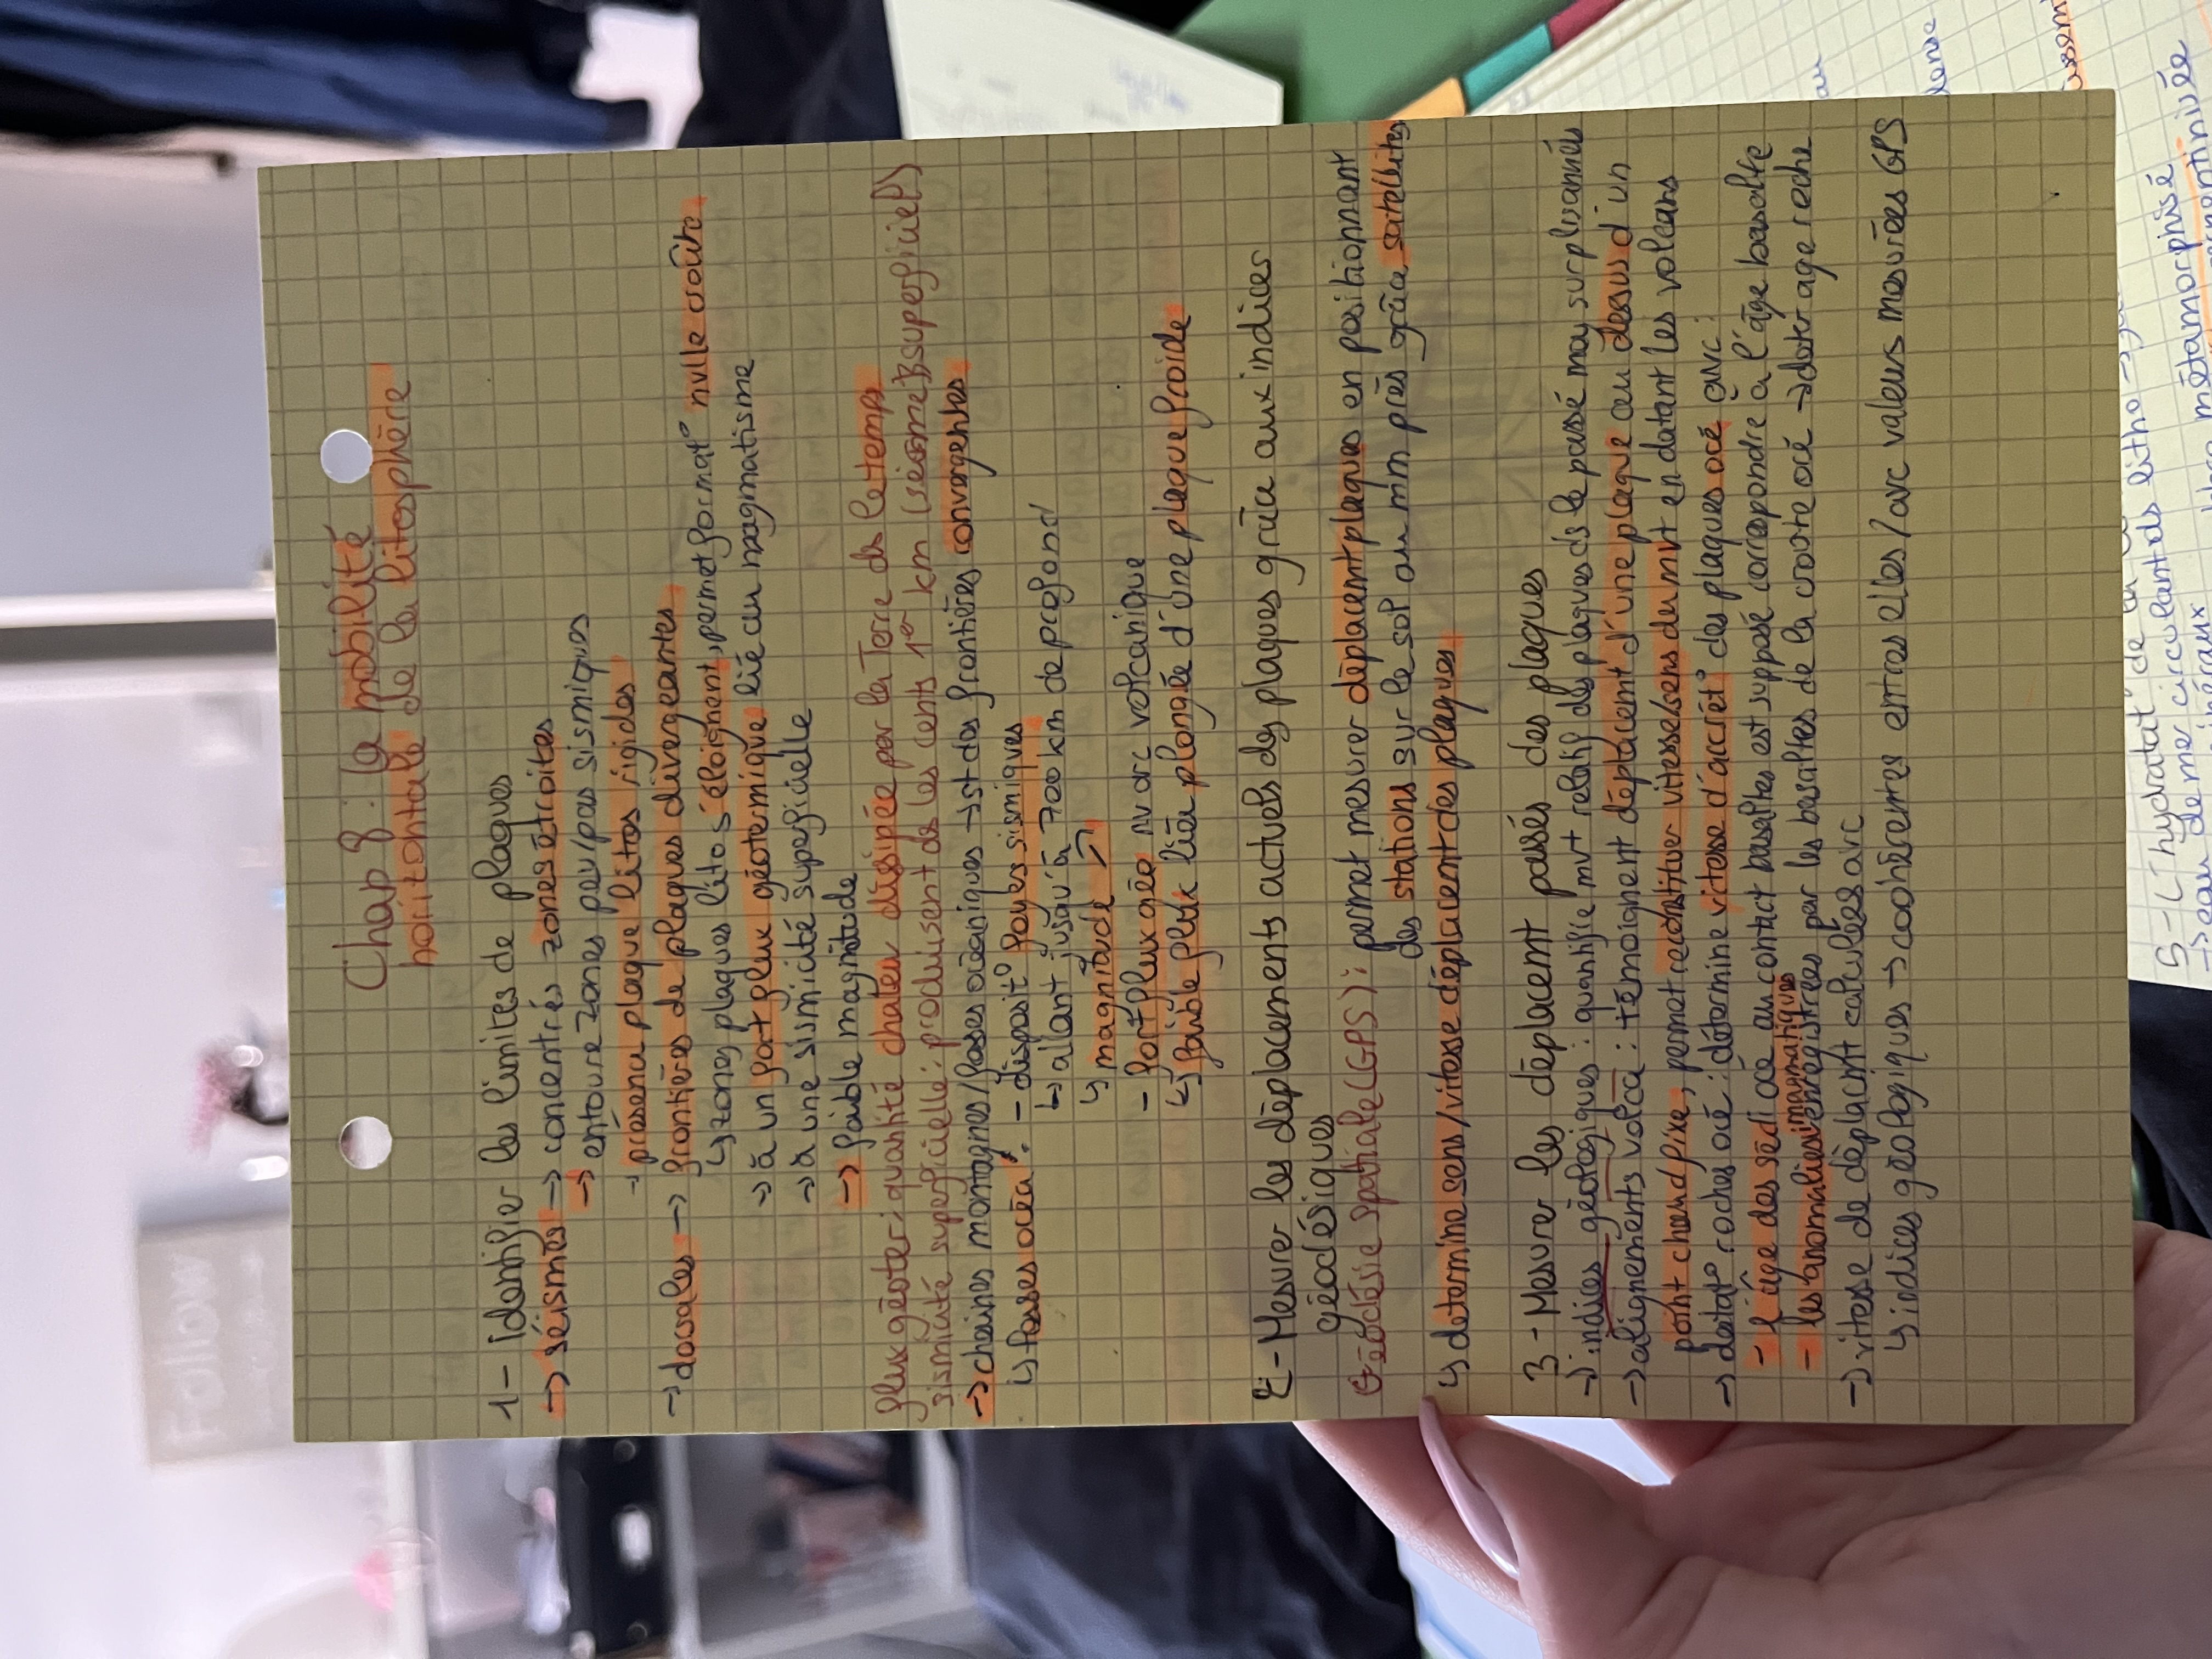 Chap 8 : la mobilité
horizontale de la litosphère
1 - identifier les limites de plaques
→ séismes → concentrés zones étroites
→ entoure zones peu/pas sismiques
→ présence plaque litos rigides
→ dorsales → frontières de plaques divergeantes
↳ zones plaques lito s'éloignent, permet format° nvlle croûte
→ à un fort flux géotermique lié au magmatisme
→ à une sismicité superficielle
→ faible magnitude
flux géoter : quantité chaleur dissipée par la Terre ds le temps
sismicité superficielle : produisent ds les cents 1er km (séisme superficiel)
→ chaines montagnes/fosses océaniques → st des frontières convergentes
↳ fosses océa : - disposit° foyers sismiques
↳ allant jusqu'à 700 km de profond
↳ magnitude ↗
- fort flux géo nv arc volcanique
↳ faible flux lié à plongée d'une plaque froide
2 - Mesurer les déplacements actuels des plaques grâce aux indices
géodésiques
Géodésie spatiale (GPS) : permet mesurer déplacemt plaques en positionnant
des stations sur le sol au mm près grâce satellites
↳ determine sens/vitesse déplacement des plaques
3 - Mesurer les déplacement passés des plaques
→ indices géologiques : quantifie mvt relatif des plaques ds le passé
→ alignements volca : témoignent déplacemt d'une plaque au dessus d'un
point chaud fixe, permet reconstituer vitesse/sens du mvt en datant les volcans
→ datat° roches océ : détermine vitesse d'accrét° des plaques océ avc :
- l'âge des sédi océ au contact basaltes est supposé correspondre à l'âge basalte
- les anomalies magnatiques enregistrées par les basaltes de la croute océ → dater age roche
→ vitesse de déplacmt calculées avc
↳ indices géologiques → cohérentes entres elles/avc valeurs mesurées GPS
5 - L'hydratat° de
métamorphisé